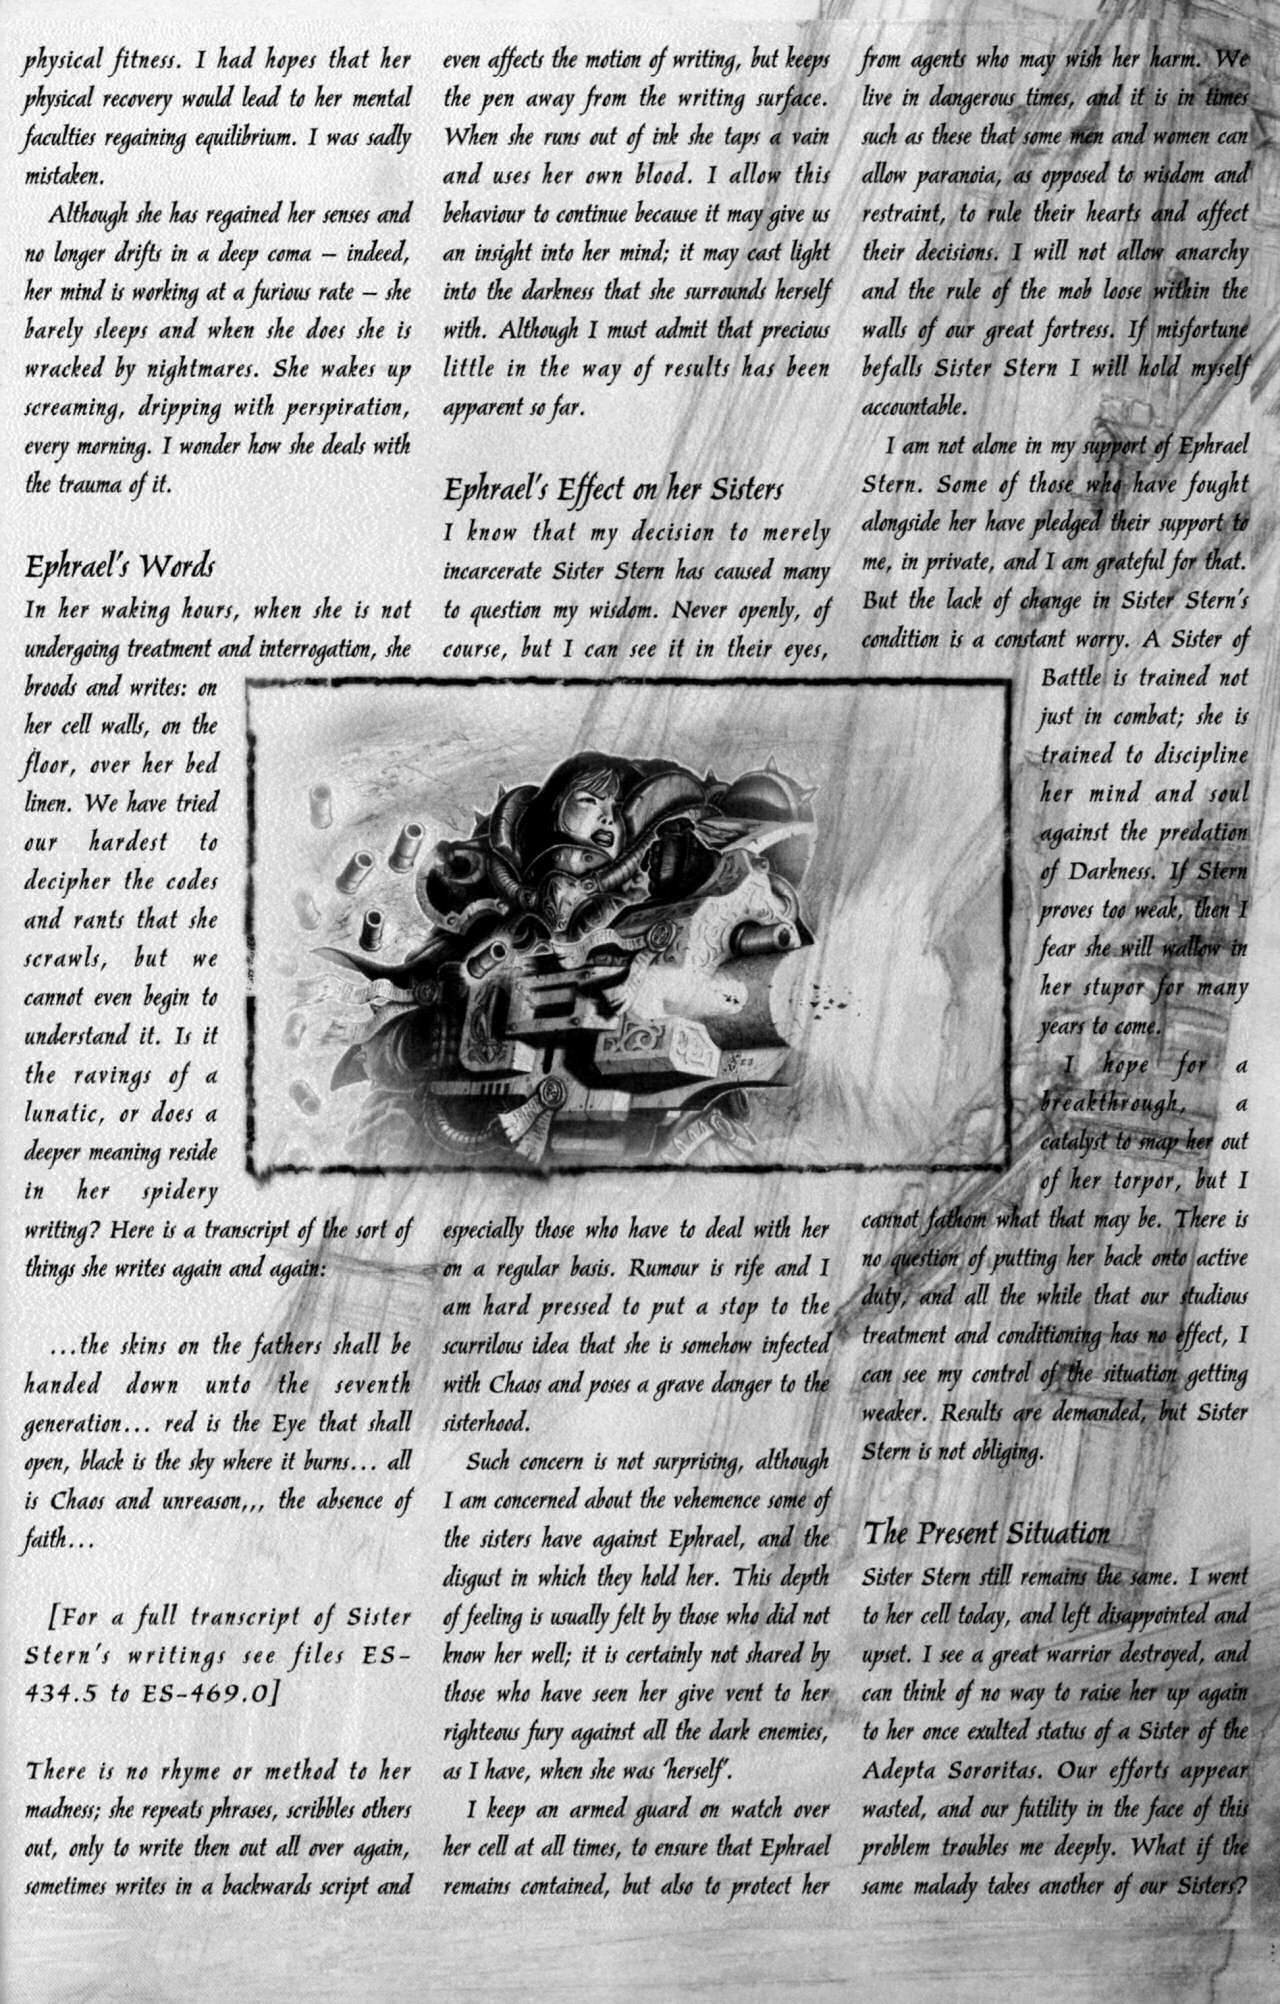 physical fitness. I had hopes that her
physical recovery would lead to her mental
faculties regaining equilibrium. I was sadly
mistaken.
Although she has regained her senses and
no longer drifts in a deep coma – indeed,
her mind is working at a furious rate – she
barely sleeps and when she does she is
wracked by nightmares. She wakes up
screaming, dripping with perspiration,
every morning. I wonder how she deals with
the trauma of it.
Ephrael's Words
In her waking hours, when she is not
undergoing treatment and interrogation, she
broods and writes: on
her cell walls, on the
floor, over her bed
linen. We have tried
our hardest to
decipher the codes
and rants that she
scrawls, but we
cannot even begin to
understand it. Is it
the ravings of a
lunatic, or does a
deeper meaning reside
in her spidery
writing? Here is a transcript of the sort of
things she writes again and again:
...the skins on the fathers shall be
handed down unto the seventh
generation... red is the Eye that shall
open, black is the sky where it burns... all
is Chaos and unreason,,, the absence of
faith...
[For a full transcript of Sister
Stern's writings see files ES-
434.5 to ES-469.0]
There is no rhyme or method to her
madness; she repeats phrases, scribbles others
out, only to write then out all over again,
sometimes writes in a backwards script and
even affects the motion of writing, but keeps
the pen away from the writing surface.
When she runs out of ink she taps a vain
and uses her own blood. I allow this
behaviour to continue because it may give us
an insight into her mind; it may cast light
into the darkness that she surrounds herself
with. Although I must admit that precious
little in the way of results has been
apparent so far.
Ephrael's Effect on her Sisters
I know that my decision to merely
incarcerate Sister Stern has caused many
to question my wisdom. Never openly, of
course, but I can see it in their eyes,
especially those who have to deal with her
on a regular basis. Rumour is rife and I
am hard pressed to put a stop to the
scurrilous idea that she is somehow infected
with Chaos and poses a grave danger to the
sisterhood.
Such concern is not surprising, although
I am concerned about the vehemence some of
the sisters have against Ephrael, and the
disgust in which they hold her. This depth
of feeling is usually felt by those who did not
know her well; it is certainly not shared by
those who have seen her give vent to her
righteous fury against all the dark enemies,
as I have, when she was 'herself'.
I keep an armed guard on watch over
her cell at all times, to ensure that Ephrael
remains contained, but also to protect her
from agents who may wish her harm. We
live in dangerous times, and it is in times
such as these that some men and women can
allow paranoia, as opposed to wisdom and
restraint, to rule their hearts and affect
their decisions. I will not allow anarchy
and the rule of the mob loose within the
walls of our great fortress. If misfortune
befalls Sister Stern I will hold myself
accountable.
I am not alone in my support of Ephrael
Stern. Some of those who have fought
alongside her have pledged their support to
me, in private, and I am grateful for that.
But the lack of change in Sister Stern's
condition is a constant worry. A Sister of
Battle is trained not
just in combat; she is
trained to discipline
her mind and soul
against the predation
of Darkness. If Stern
proves too weak, then I
fear she will wallow in
her stupor for many
years to come.
I hope for a
breakthrough, a
catalyst to snap her out
of her torpor, but I
cannot fathom what that may be. There is
no question of putting her back onto active
duty, and all the while that our studious
treatment and conditioning has no effect, I
can see my control of the situation getting
weaker. Results are demanded, but Sister
Stern is not obliging.
The Present Situation
Sister Stern still remains the same. I went
to her cell today, and left disappointed and
upset. I see a great warrior destroyed, and
can think of no way to raise her up again
to her once exulted status of a Sister of the
Adepta Sororitas. Our efforts appear
wasted, and our futility in the face of this
problem troubles me deeply. What if the
same malady takes another of our Sisters?